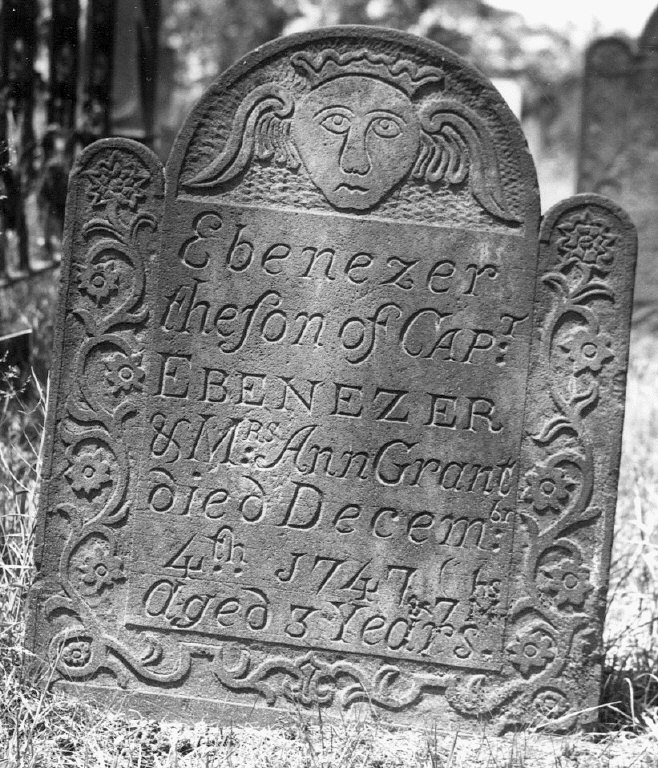 Ebenezer
the ſon of CAPT
EBENEZER
& MRS Ann Grant
died Decembr
4th 1747
Aged 3 Years & 7 Ms